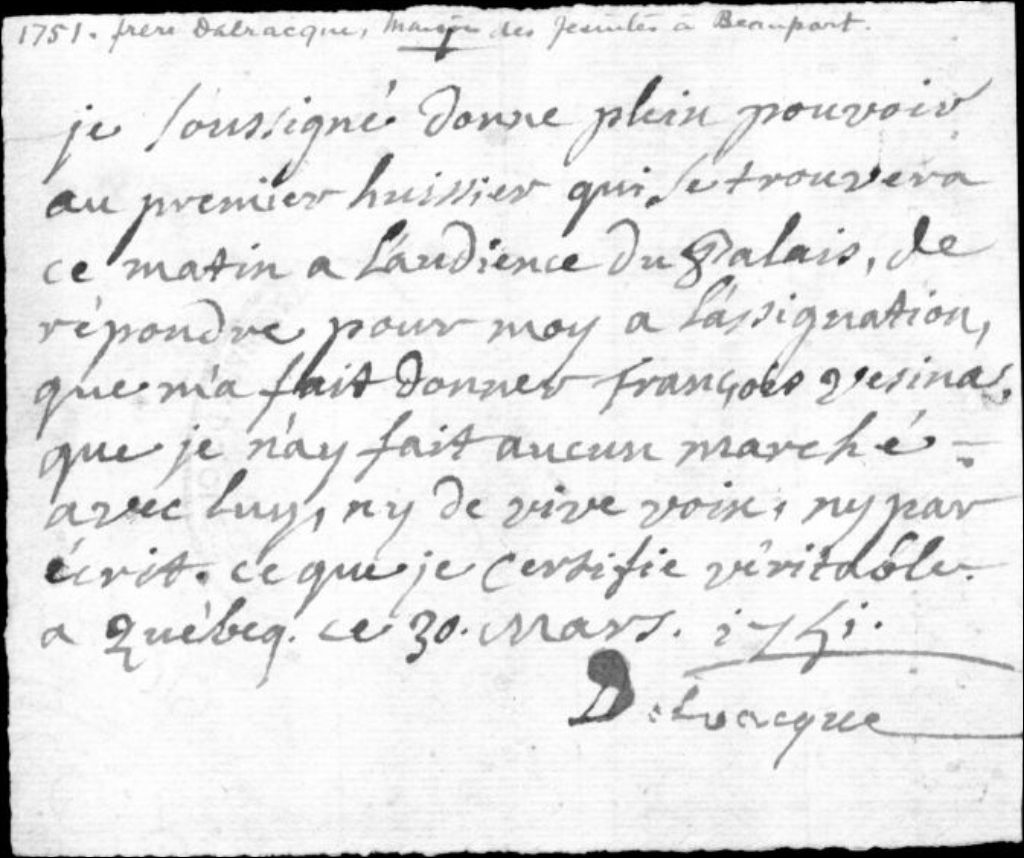 1751. frere Dalracque, des Jesuites a Beauport.
je soussigné donne plein pouvoir
au premier huissier qui se trouvera
ce matin a l'audience du Palais, de
répondre pour moy a l'assignation,
que m'a fait donner françois vesina,
que je n'ay fait aucun marché -
avec luy, ny de vive voix, ny par
écrit. ce que je certifie véritable.
a Québeq. ce 30. Mars. 1751.
Delvacque